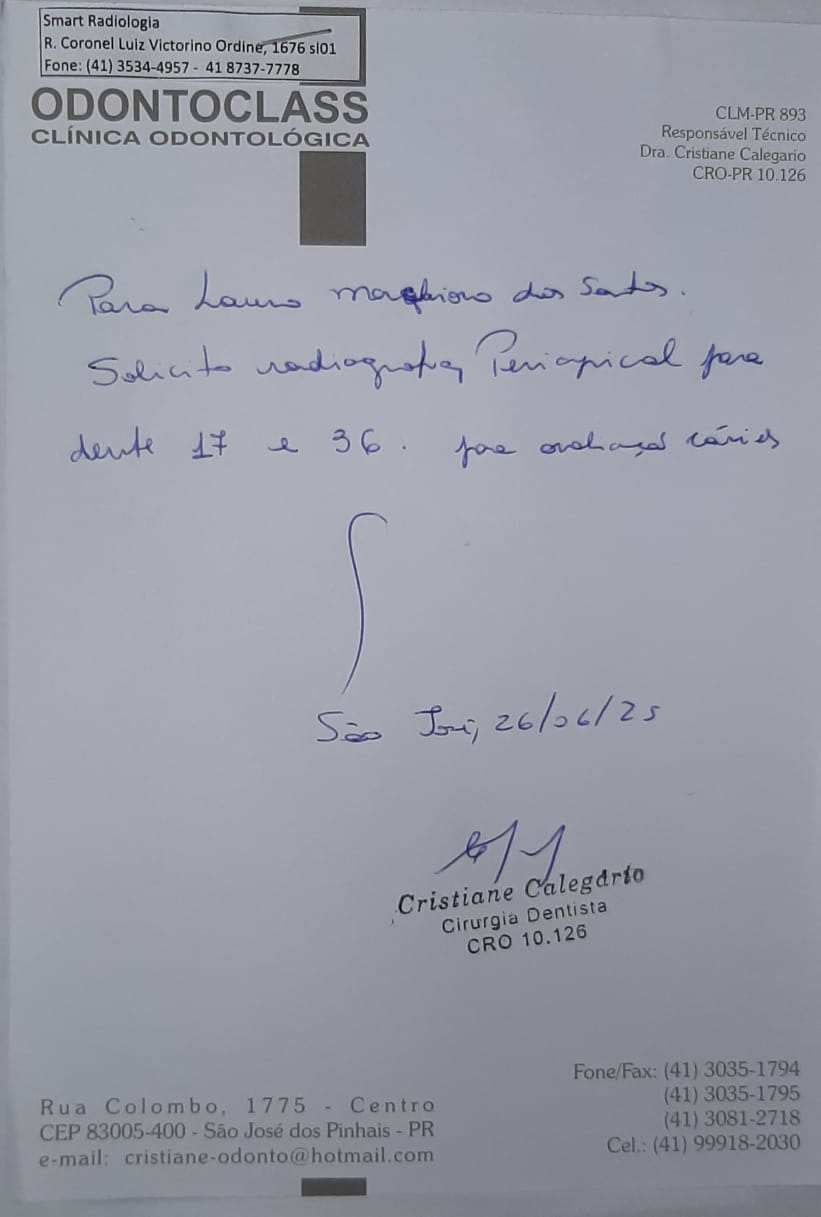 Smart Radiologia
R. Coronel Luiz Victorino Ordine, 1676 sl01
Fone: (41) 3534-4957 - 41 8737-7778
ODONTOCLASS
CLÍNICA ODONTOLÓGICA
CLM-PR 893
Responsável Técnico
Dra. Cristiane Calegario
CRO-PR 10.126
Para Lauro dos Santos.
Solicito radiografia Periapical para
dente 17 e 36. para avaliação cáries
São José, 26/06/25
Cristiane Calegario
Cirurgia Dentista
CRO 10.126
Rua Colombo, 1775 - Centro
CEP 83005-400 - São José dos Pinhais - PR
e-mail: cristiane-odonto@hotmail.com
Fone/Fax: (41) 3035-1794
(41) 3035-1795
(41) 3081-2718
Cel.: (41) 99918-2030